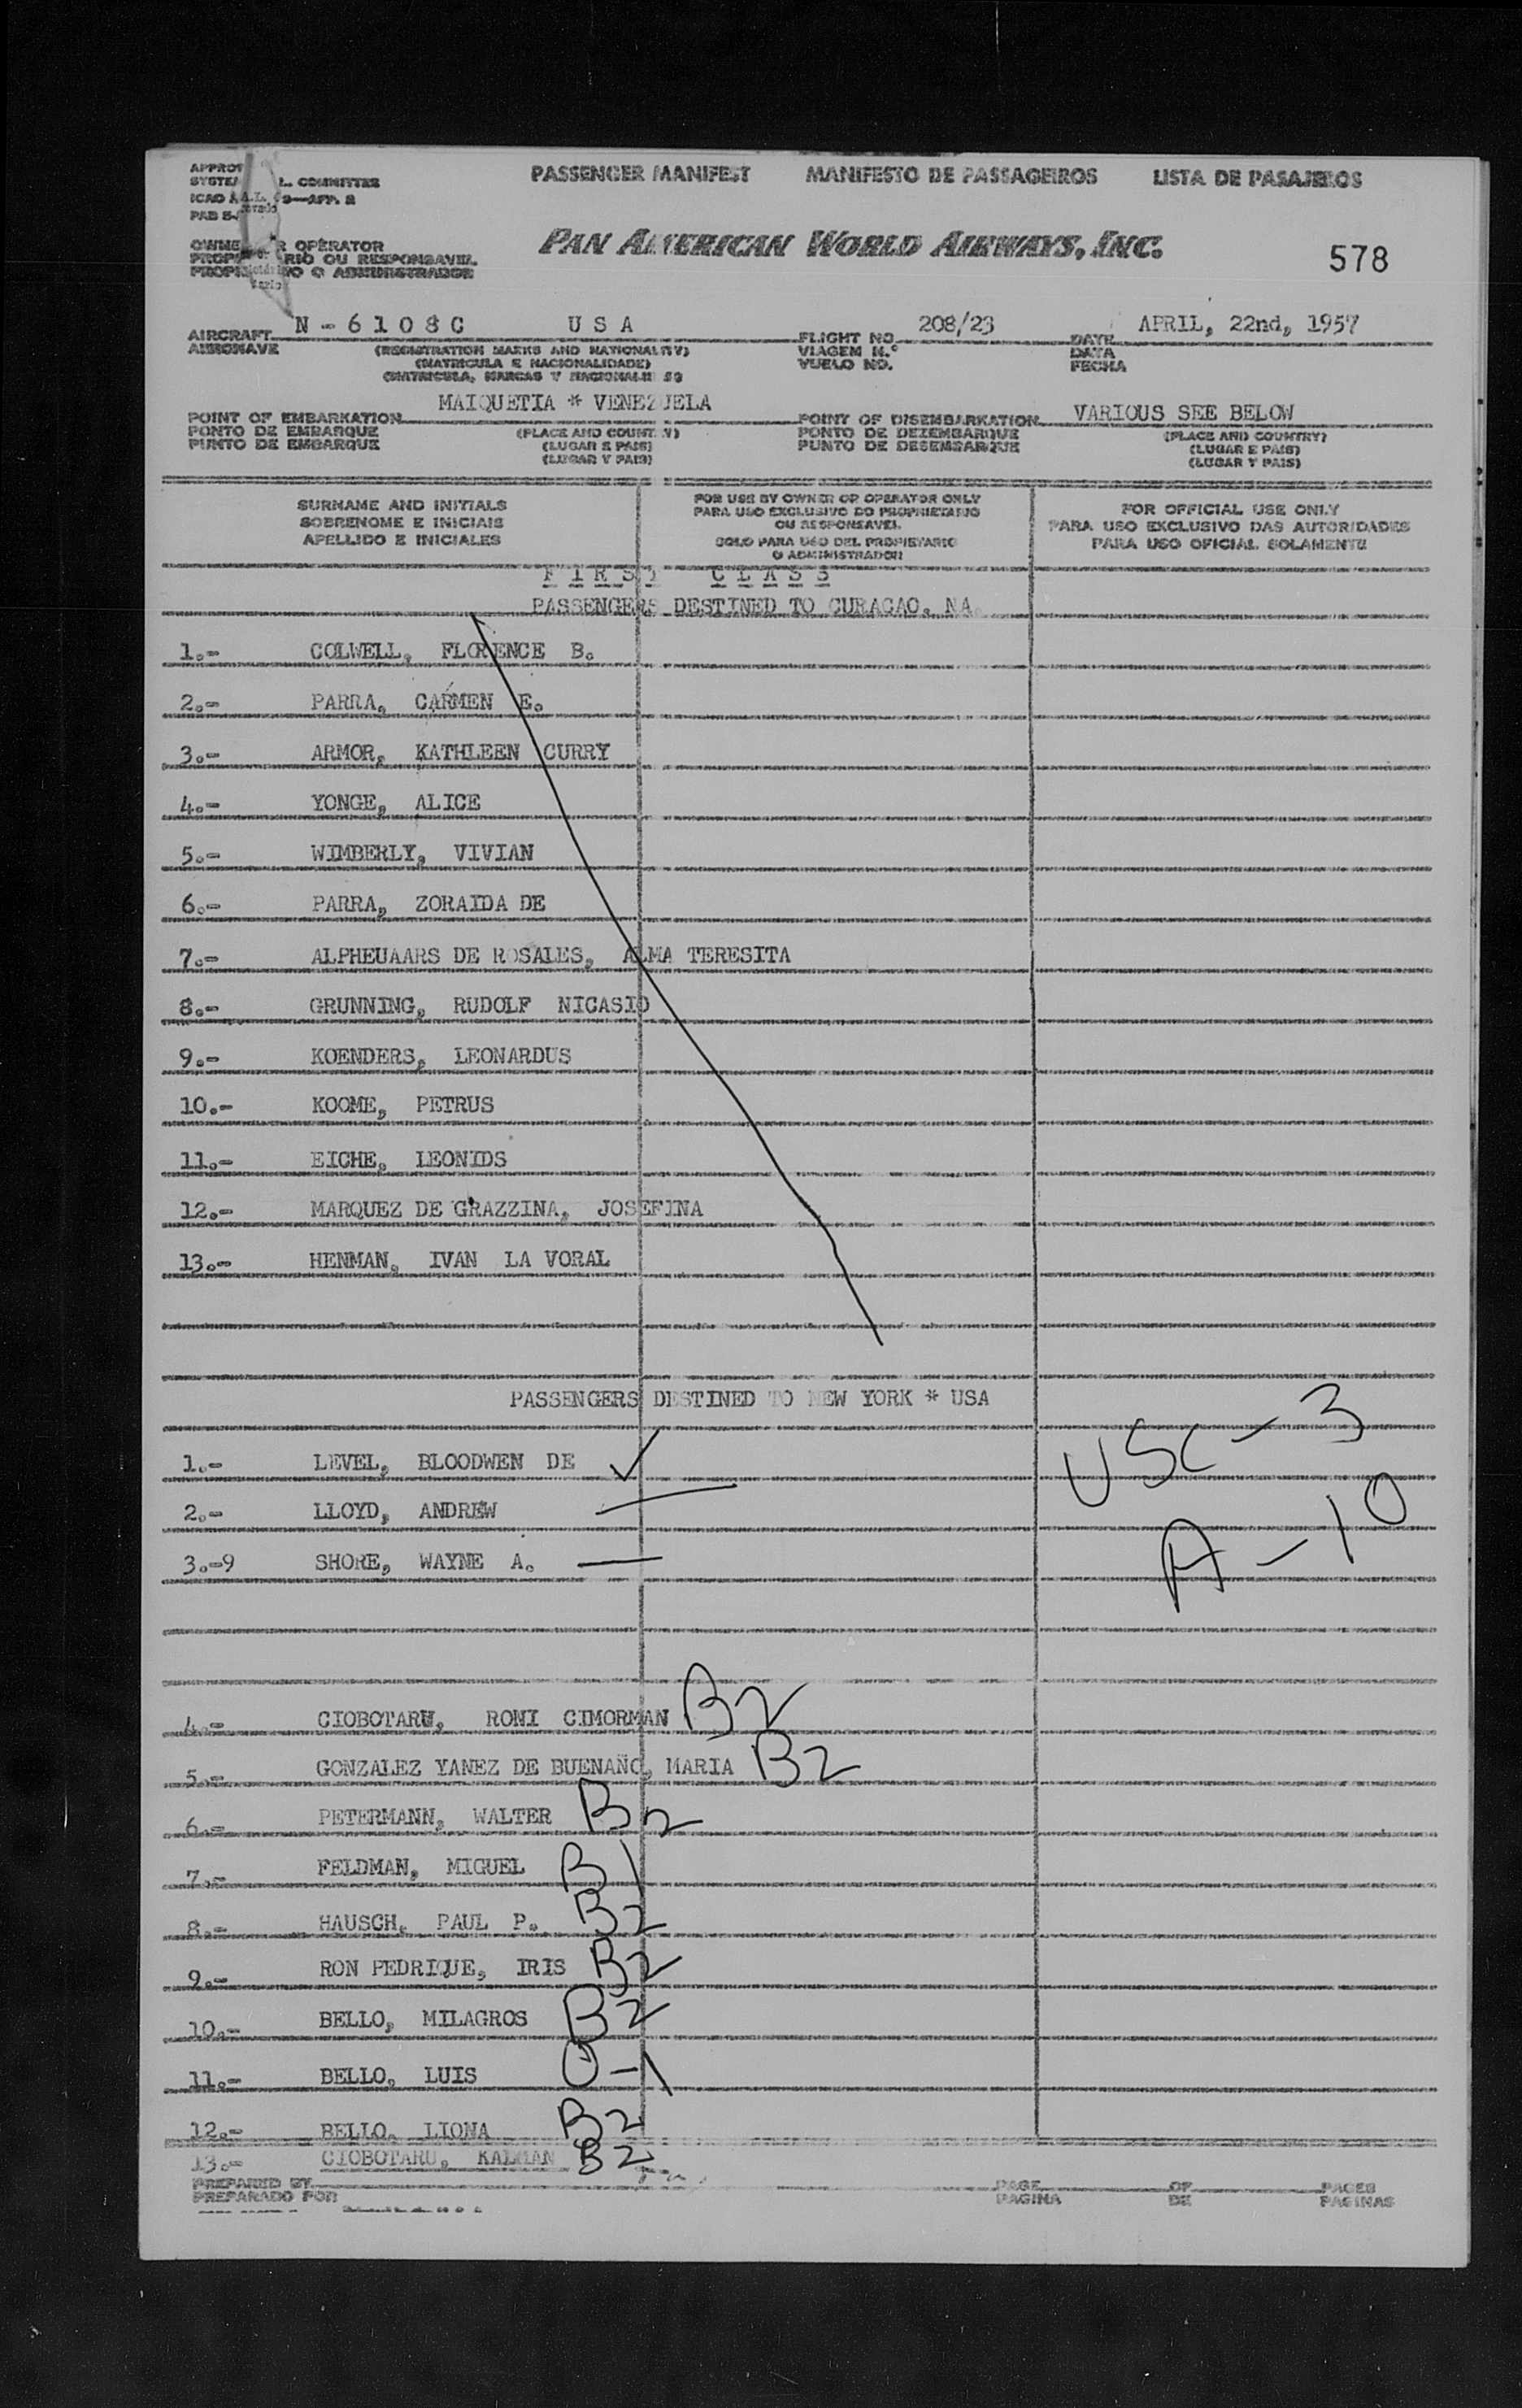 PASSENGER MANIFEST MANIFESTO DE PASSAGEIROS LISTA DE PASAJEROS
L. COMMITTEE
PAN AMERICAN WORLD AIRWAYS, INC.
578
OWNER OR OPERATOR
PROPRIETARIO OU RESPONSAVEL
PROPIETARIO O ADMINISTRADOR
AIRCRAFT N-6108C USA FLIGHT NO. 208/23 DATE APRIL, 22nd, 1957
AERONAVE (REGISTRATION MARKS AND NATIONALITY) VIAGEM N.º DATA
(MATRICULA E NACIONALIDADE) VUELO NO. FECHA
POINT OF EMBARKATION MAIQUETIA * VENEZUELA POINT OF DISEMBARKATION VARIOUS SEE BELOW
PONTO DE EMBARQUE (PLACE AND COUNTRY) PONTO DE DEZEMBARQUE (PLACE AND COUNTRY)
PUNTO DE EMBARQUE (LUGAR E PAIS) PUNTO DE DESEMBARQUE (LUGAR E PAIS)
(LUGAR Y PAIS) (LUGAR Y PAIS)
SURNAME AND INITIALS FOR USE BY OWNER OR OPERATOR ONLY FOR OFFICIAL USE ONLY
SOBRENOME E INICIAIS PARA USO EXCLUSIVO DO PROPRIETARIO PARA USO EXCLUSIVO DAS AUTORIDADES
OU RESPONSAVEL
APELLIDO E INICIALES SOLO PARA USO DEL PROPIETARIO PARA USO OFICIAL SOLAMENTE
O ADMINISTRADOR
FIRST CLASS
PASSENGERS DESTINED TO CURACAO, NA.
1.- COLWELL, FLORENCE B.
2.- PARRA, CARMEN E.
3.- ARMOR, KATHLEEN CURRY
4.- YONGE, ALICE
5.- WIMBERLY, VIVIAN
6.- PARRA, ZORAIDA DE
7.- ALPHEUAARS DE ROSALES, ALMA TERESITA
8.- GRUNNING, RUDOLF NICASIO
9.- KOENDERS, LEONARDUS
10.- KOOME, PETRUS
11.- EICHE, LEONIDS
12.- MARQUEZ DE GRAZZINA, JOSEFINA
13.- HENMAN, IVAN LA VORAL
PASSENGERS DESTINED TO NEW YORK * USA
USC - 3
1.- LEVEL, BLOODWEN DE ✓
2.- LLOYD, ANDREW —
A - 10
3.-9 SHORE, WAYNE A. —
4.- CIOBOTARU, RONI CIMORMAN B2
5.- GONZALEZ YANEZ DE BUENAÑO, MARIA B2
6.- PETERMANN, WALTER B2
7.- FELDMAN, MIGUEL B1
8.- HAUSCH, PAUL P. B2
9.- RON PEDRIQUE, IRIS B2
10.- BELLO, MILAGROS B2
11.- BELLO, LUIS O-1
12.- BELLO, LIONA B2
13.- CIOBOTARU, KALMAN B2
PREPARED BY PAGE OF PAGES
PREPARADO POR PAGINA DE PAGINAS